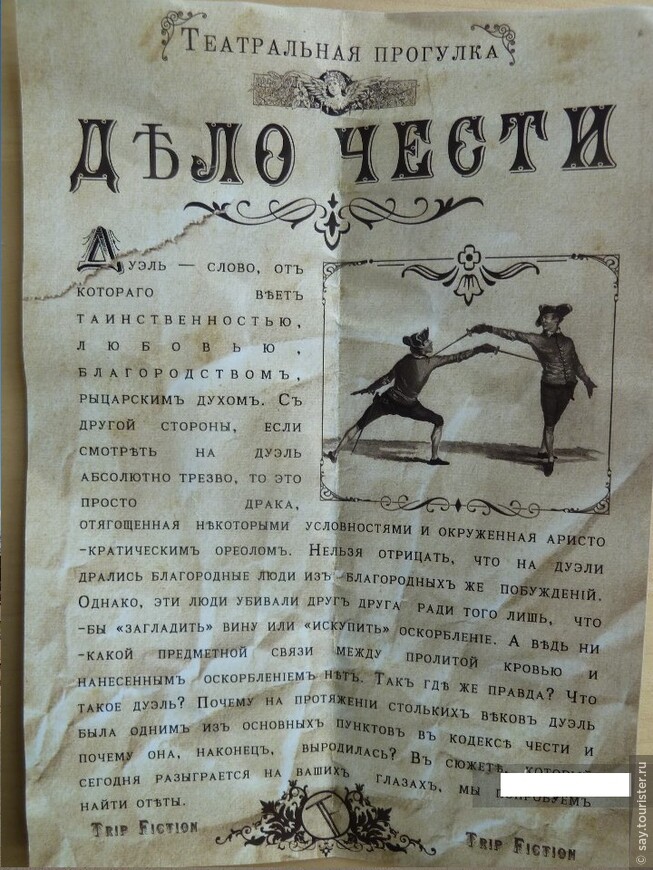 Театральная прогулка
ДѢЛО ЧЕСТИ
Дуэль — слово, отъ
котораго вѣетъ
таинственностью,
любовью,
благородствомъ,
рыцарскимъ духомъ. Съ
другой стороны, если
смотрѣть на дуэль
абсолютно трезво, то это
просто драка,
отягощенная нѣкоторыми условностями и окруженная аристо
-кратическимъ ореоломъ. Нельзя отрицать, что на дуэли
дрались благородные люди изъ благородныхъ же побужденій.
Однако, эти люди убивали другъ друга ради того лишь, что
-бы «загладить» вину или «искупить» оскорбленіе. А вѣдь ни
-какой предметной связи между пролитой кровью и
нанесеннымъ оскорбленіемъ нѣтъ. Такъ гдѣ же правда? Что
такое дуэль? Почему на протяженіи столькихъ вѣковъ дуэль
была однимъ изъ основныхъ пунктовъ въ кодексѣ чести и
почему она, наконецъ, выродилась? Въ сюжетѣ, который
сегодня разыграется на вашихъ глазахъ, мы попробуемъ
найти отѣты.
Trip Fiction
T
Trip Fiction
© say.tourister.ru